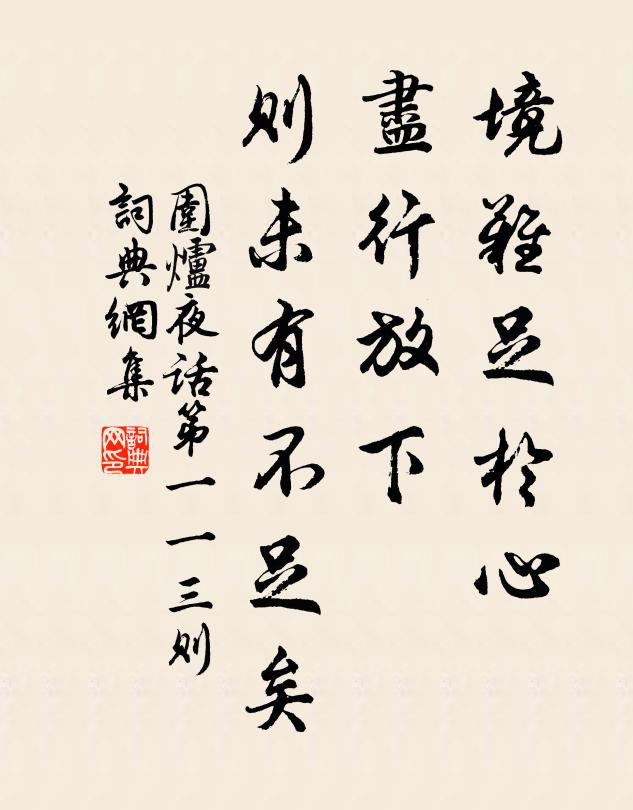 境難足於心
盡行放下
則未有不足矣
圍爐夜話第一一三則
詞典網集
詞典网印